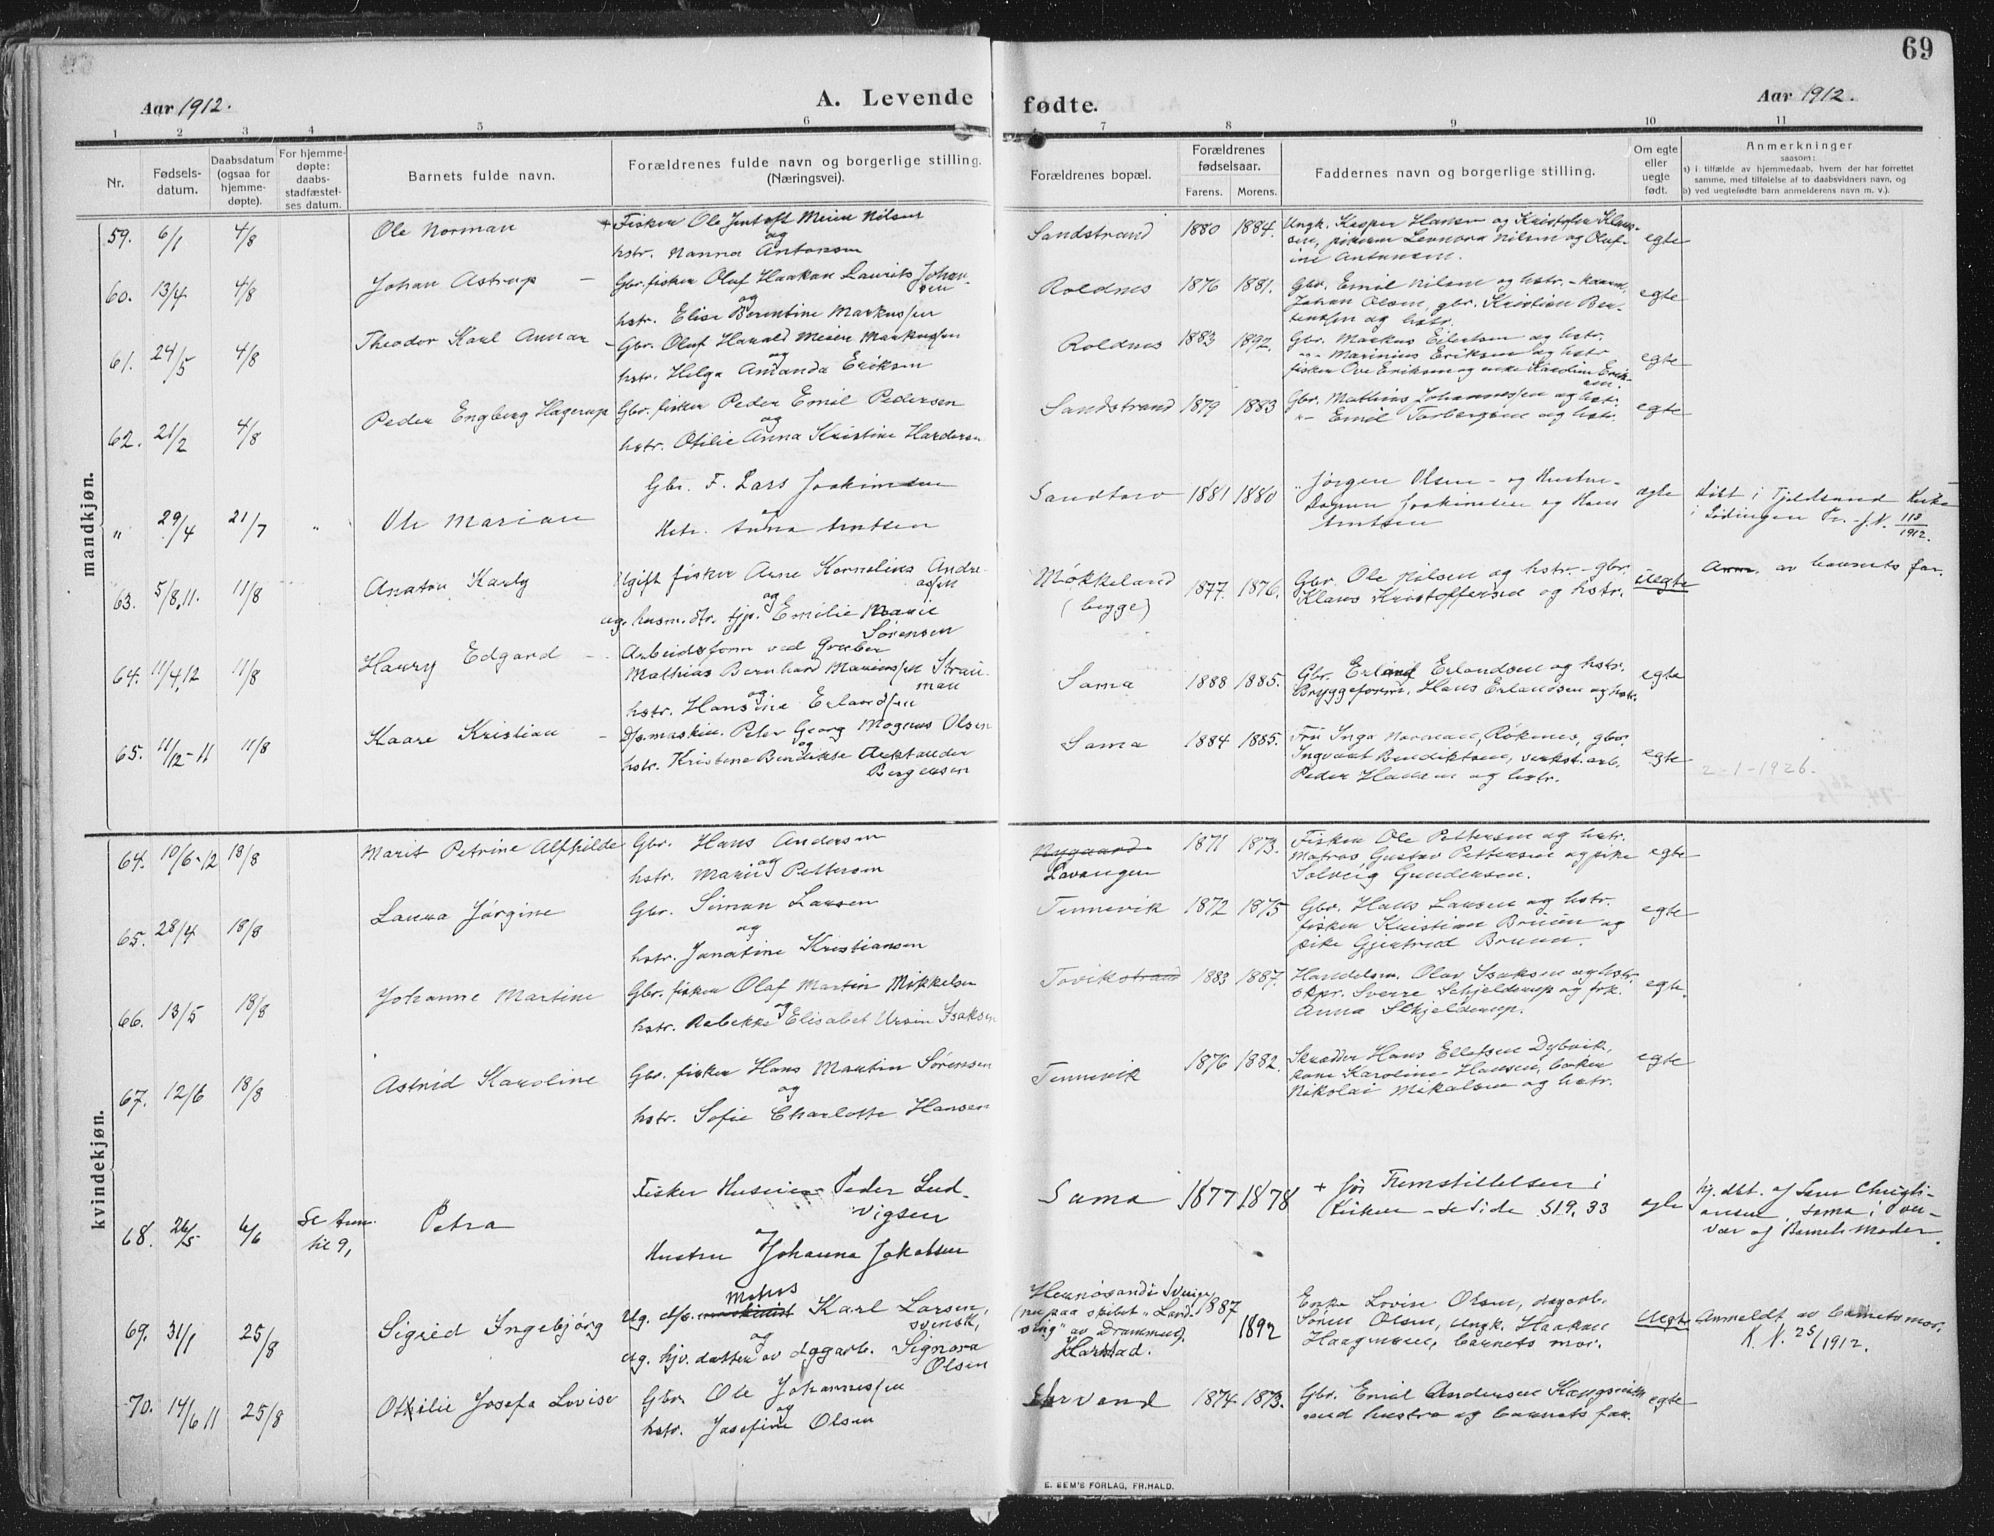 69
Aar 1912.
A. Levende
fødte.
Aar 1912.
1 2 3 4 5 6 7 8 9 10 11
Nr.
Fødsels-
datum.
Daabsdatum
(ogsaa for
hjemme-
døpte).
For hjemme-
døpte:
daabs-
stadfæstel-
ses datum.
Barnets fulde navn.
Forældrenes fulde navn og borgerlige stilling.
(Næringsvei).
Forældrenes bopæl.
Forældrenes
fødselsaar.
Farens. Morens.
Faddernes navn og borgerlige stilling.
Om egte
eller
uegte
født.
Anmerkninger
saasom:
a) i tilfælde av hjemmedaab, hvem der har forrettet
samme, med tilføielse af to daabsvidners navn, og
b) ved uegtefødte barn anmelderens navn m. v.).
mandkjøn.
59. 6/1 4/8 Ole Norman
Fisker Ole Jentoft Meier Nilsen
og
hstr. Nanna Antonsen
Sandstrand 1880 1884.
Ungk. Kasper Hansen og Kristofer Klau-
sen, pikerne Leonora Nilsen og Oluf-
ine Antonsen.
egte
60. 13/4 4/8 Johan Astrup
Gbr. fisker Oluf Haakon Laurits Johan-
sen
og
hstr. Elise Berentine Markussen
Roldnes 1876 1881.
Gbr. Emil Nilsen og hstr.
Johan Olsen, gbr. Kristian Ber-
tensen og hstr.
egte
61. 24/5 4/8 Theodor Karl Annar
Gbr. Oluf Harald Meier Markussen
og
hstr. Helga Amanda Eriksen
Roldnes 1883 1892.
Gbr. Markus Eilertsen og hstr.
-"- Marinius Eriksen og hstr.
fisker Ove Eriksen og enke Karoline Erik-
sen.
egte
62. 21/2 4/8 Peder Engberg Hagerup
Gbr. fisker Peder Emil Pedersen
og
hstr. Otilie Anna Kristine Hardersen
Sandstrand 1879 1883
Gbr. Mathias Johannessen og hstr.
-"- Emil Torbergsen og hstr.
egte
" 29/4 21/7 " Ole Marian
Gbr. F. Lars Joakimsen
Hstr. Anna Arntsen
Sandtorv 1881 1880
Jørgen Olsen og Hustru
Joakimsen og Hans
Arntsen
ægte
Døbt i Tjeldsund Kirke
i Lødingen Pr. J.N. 113/1912.
63. 5/8.11. 11/8 Anaton Karly
Ugift fisker Arne Kornelius Andre-
assen
og
ug. husm. dtr. tjp. Emilie Marie
Sørensen
Møkkeland
(begge) 1877. 1876.
Gbr. Ole Nilsen og hstr. - gbr.
Klaus Kristoffersen og hstr.
uegte
Anm. av barnets far.
64. 11/4.12 11/8 Harry Edgard
Arbeidsform ved Gruber
Mathias Bernhard Mariussen Strau-
man
og
hstr. Hansine Erlandsen
Sama 1888 1885.
Gbr. Erling Erlandsen og hstr.
Bryggeform. Hans Erlandsen og hstr.
egte
65. 11/12-11 11/8 Kaare Kristian
D/s. maskin. Peter Georg Magnus Olsen
og
hstr. Kristene Bendikte Arktander
Bergersen
Sama 1884 1885.
Fru Inga Normann, Røkenes, gbr.
Ingvart Bendiktsen, verkst. arb.
Peder Hansen og hstr.
egte
2-1-1926.
kvindekjøn.
64. 10/6-12 18/8 Marit Petrine Alfhilde
Gbr. Hans Andersen
og
hstr. Marie Pettersen
Nygaard
Lavangen 1871 1873.
Fisker Ole Pettersen og hstr.
Matros Gustav Pettersen og pike
Solveig Gundersen.
egte
65. 28/4 18/8 Laura Jørgine
Gbr. Simon Larsen
og
hstr. Janatine Kristiansen
Tennevik 1872 1875
Gbr. Hans Larsen og hstr.
fisker Kristian Bruun og
pike Gjertrud Bruun.
egte
66. 13/5 18/8 Johanne Martine
Gbr. fisker Olaf Martin Mikkelsen
og
hstr. Rebekke Elisabet Ursin Isaksen
Tovikstrand 1883 1887.
Handelsm. Olav Isaksen og hstr.
ekpr. Sverre Schjelderup og frk.
Anna Schjelderup.
egte.
67. 12/6 18/8 Astrid Karoline
Gbr. fisker Hans Martin Sørensen
og
hstr. Sofie Charlotte Hansen
Tennevik 1876 1882.
Skrædder Hans Ellefsen Dybvik,
kone Karoline Hansen, baker
Nikolai Mikalsen og hstr.
egte
68. 26/5 6/6 Se Anm.
til 9, Petra
Fisker Huseier Peder Lud-
vigsen
Hustru Johanna Jakobsen
Sama 1877 1878
+ før Fremstillelsen i
Kirken - se Side 519, 33
egte
Hj. dbt. af Lars Christi-
ansen, Sama, i Nær-
vær af Barnets Moder.
69. 31/1 25/8 Sigrid Ingebjørg
Ug. d/s. maskinist Matros Karl Larsen,
svensk,
og
ug. hjv. datter av dagarb. Signora
Olsen
Hernøsand i Sverige
(nu paa skibet "Lands-
ving" av Drammen).
Harstad. 1887 1892
Enke Lovise Olsen, dagarb.
Søren Olsen, ungk. Haakon
Haagensen, barnets mor.
uegte
Anmeldt av barnets mor.
K. N. 25/1912.
70. 14/6 11 25/8 Otilie Josefa Lovise
Gbr. Ole Johannessen
og
hstr. Josefine Olsen
1874 1873.
Gbr. Emil Andersen Kongsvik
med hustru og barnets far.
egte
E. SEM'S FORLAG, FR.HALD.